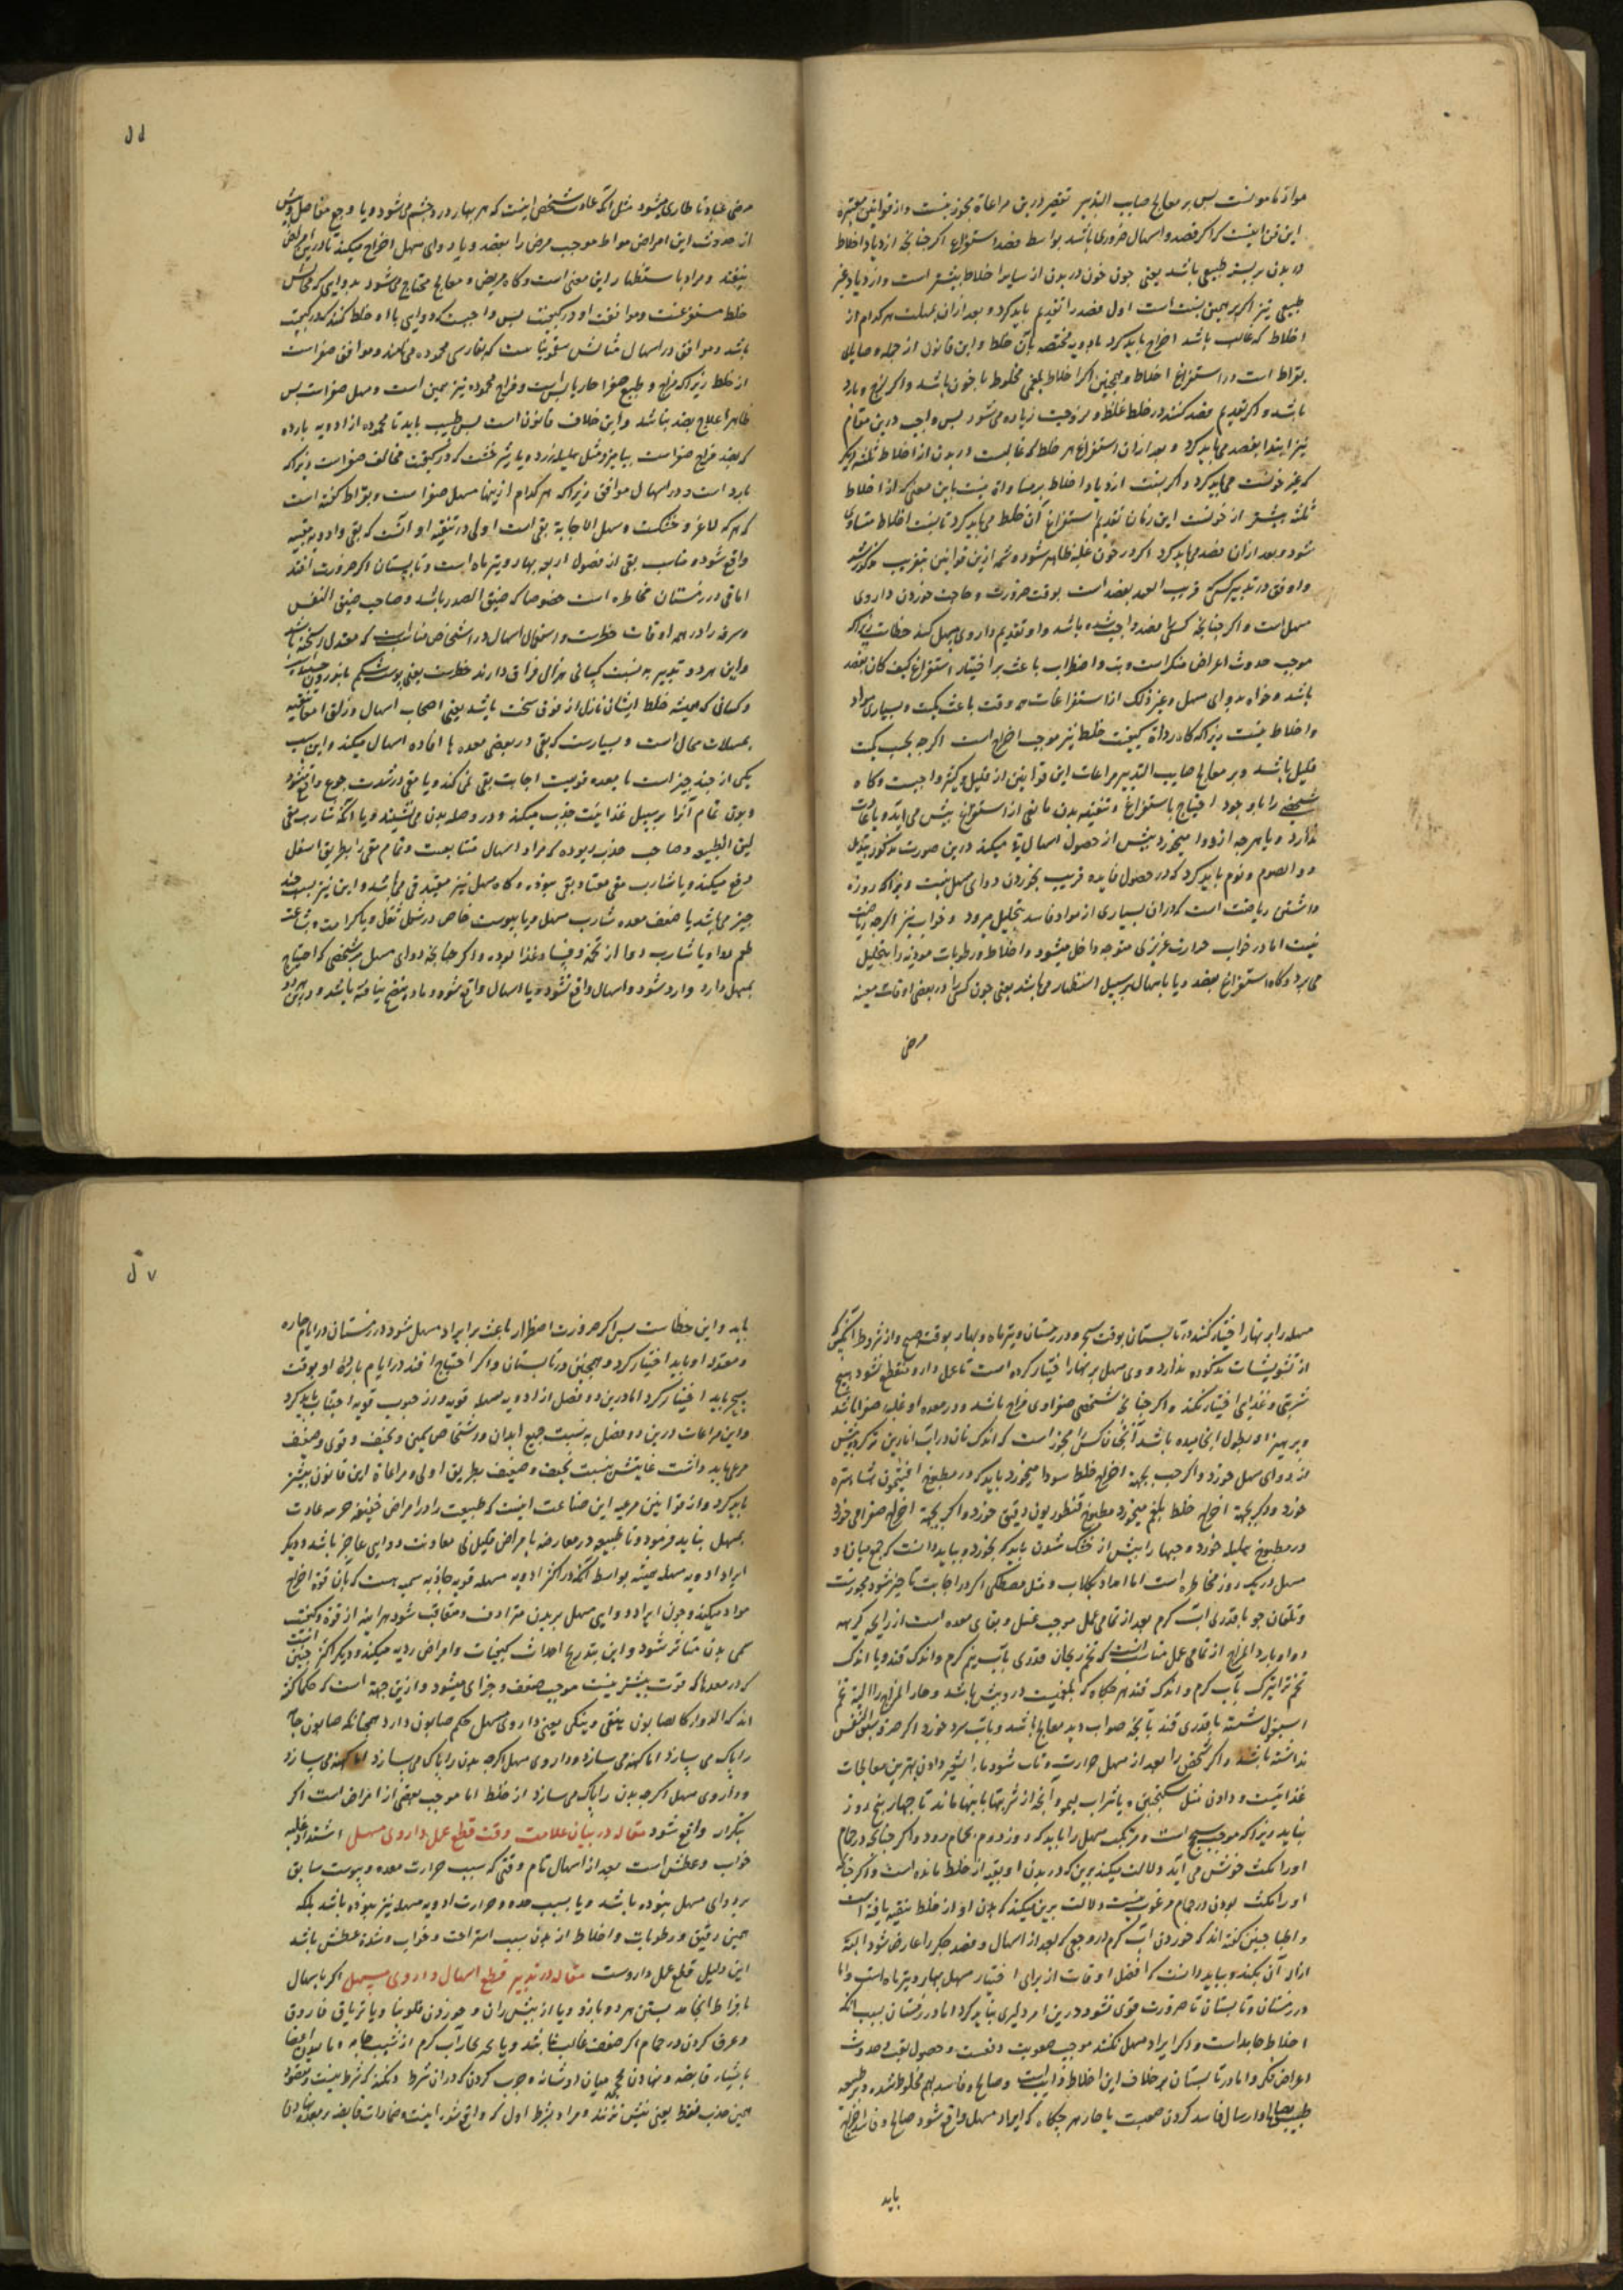 مواد نامو است پس بر معالج صایب التدبیر تقصیر درین مراعاة مجوز نیست و از قوانین معتبره
این فن اینست که اگر فصد و اسهال ضروری باشد بواسطه فصد استفراغ اگر چنانچه ازدیاد اخلاط
در بدن بر نسبت طبیعی باشد یعنی چون خون در بدن از سایر اخلاط بیشتر است و ازدیاد غیر
طبیعی نیز اگر بر همین نسبت است اول فصد را تقدیم باید کرد و بعد از آن بمسهلات هر کدام از
اخلاط که غالب باشد اخراج باید کرد بادویه مختصه بآن خلط و این قانون از جمله وصایای
بقراط است در استفراغ اخلاط و همچنین اگر اخلاط بلغمی مخلوط با خون باشد و اگر لزج و بارد
باشد و اگر تقدیم فصد کنند در خلط غلظ و لزوجیت زیاده می‌شود پس واجب درین مقام
نیز ابتدا بفصد می‌باید کرد و بعد از آن استفراغ هر خلط که غالبست در بدن از اخلاط ثلثه دیگر
که غیر خونست می‌باید کرد و اگر نسبت ازدیاد اخلاط بر مساواة نیست باین معنی که از اخلاط
ثلثه بیشتر از خونست این زمان تقدیم استفراغ آن خلط می‌باید کرد تا نسبت اخلاط متساوی
شود و بعد از آن فصد می‌باید کرد اگر در خون غلبه ظاهر شود و تتمه ازین قوانین بتقریب مذکور شد
و اوفق در تدبیر کسی که قریب العهد بفصد است بوقت ضرورت و حاجت خوردن داروی
مسهل است و اگر چنانچه کسی را فصد واجب شده باشد و او تقدیم داروی مسهل کند خطاست زیرا که
موجب حدوث اعراض منکر است و تب و اضطراب باعث بر اختیار استفراغ کیف کان بفصد
باشد و خواه بدوای مسهل و غیر ذلک از استفراغات همه وقت باعث کمیت و بسیاری مواد
و اخلاط نیست زیرا که گاه رداءة کیفیت خلط نیز موجب اخراج است اگر چه بحسب کمیت
قلیل باشد و بر معالج صایب التدبیر مراعات این قوانین از قلیل و کثیر واجبست و گاه
شخصی را با وجود احتیاج باستفراغ و تنقیه بدن مانعی از استفراغ پیش می‌آید و یا عادت
ندارد و یا هر چه از دوا میخورد پیش از حصول اسهال قی میکند درین صورت مذکور بتبدیل
دوا لصوم و نوم باید کرد که در حصول فایده قریب بخوردن دوای مسهل نیست زیرا که روزه
داشتن ریاضت است که در آن بسیاری از مواد فاسد بتحلیل میرود و خواب نیز اگر چه ریاضت
نیست اما در خواب حرارت غریزی متوجه داخل میشود و اخلاط و رطوبات موذیه را بتحلیل
می‌برد و گاه استفراغ بفصد و یا باسهال بر سبیل استظهار می‌باشد یعنی چون کسی را در بعضی اوقات معینه
مرضی
مرضی عبادتا طاری میشود مثل آنکه عادت شخصی اینست که هر بهار درد چشم می‌شود و یا وجع مفاصل و پیش
از حدوث این امراض مواط موجب مرض را بفصد و یا دوای مسهل اخراج میکند تا درین امراض
نیفتد و مراد باستظهار این معنی است و گاه مریض و معالج محتاج می‌شود بدوایی که مجانس
خلط مستفرغست و موافقت او در کیفیت پس واجبست که دوایی با او خلط کنند که در کیفیت
باشد و موافق در اسهال مثالش سقمونیا ست که بفارسی محموده می‌گویند و موافق صفراست
از خلط زیرا که مزاج و طبع صفرا حار یابس است و مزاج محموده نیز همین است و مسهل صفراست پس
ظاهرا علاج بضد نباشد و این خلاف قانون است پس طبیب باید تا محموده از ادویه بارده
که بضد مزاج صفراست بیامیزد مثل هلیله زرد و یا شیرخشت که در کیفیت مخالف صفراست زیرا که
بارد است و در اسهال موافق زیرا که هر کدام ازینها مسهل صفراست و بقراط گفته است
که هر که لاغر و خشکست و سهل الاجابة بقی است اولی در تنقیه او آنست که بقی و ادویه مقییه
واقع شود و مناسب بقی از فصول اربعه بهار و تیرماه است و تابستان اگر ضرورت افتد
اما قی در زمستان مخاطره است خصوصا که ضیق الصدر باشد و صاحب ضیق النفس
و سرفه را در همه اوقات خطرست و استعمال اسهال در اشخاص مناسبست که معتدل السحنه باشد
و این هر دو تدبیر به نسبت کسانی هزال فراق دارند خطرست یعنی پوست شکم
و کسانی که همیشه خلط ایشان نازل از فوق سخت باشد یعنی اصحاب اسهال و زلق امعا تنقیه
بمسهلات محال است و بسیارست که قی در بعضی معده ها افاده اسهال میکند و این سبب
یکی از چند چیز است یا معده قویست اجابت بقی نمی‌کند و یا مقی در شدت جوع واقع میشود
و بدن تمام آنرا بر سبیل غذائیت جذب میکند و در وصله بدن می‌نشیند و یا آنکه شارب مقی
لین الطبیعه و صاحب هذیان بوده که مراد اسهال متتابعست و تمام مقی را بطریق اسفل
دفع میکند و یا شارب مقی معتاد بقی نبوده و گاه مسهل نیز مقید قی می‌باشد و این نیز بسبب چند
چیز می‌باشد یا ضعف معده شارب مسهل و یا یبوست خاص در سفل ثفل و یا کراهت و بشاعت
طعم دوا و یا شارب دوا از تخمه و فساد غذا بوده و اگر چنانچه دوای مسهل بر شخصی که احتیاج
بمسهل دارد وارد شود و اسهال واقع نشود و یا اسهال واقع شود و ماده نضج نیافته باشد و درین هر دو
مسهله را بر نهار اختیار کنند در تابستان بوقت سحر و در زمستان و تیرماه و بهار بوقت صبح و از شروط آنکه کسی که
از تشویشات مذکوره ندارد و وی مسهل بر نهار اختیار کرده است تا عمل دارو منقطع نشود هیچ
شربتی و غذایی اختیار نکند و اگر چنانچه شخصی صفراوی مزاج باشد و در معده او غلبه صفرا باشد
و پرهیز او بطول انجامیده باشد آنچنان کس را مجوز است که اندک نان در آب انارین تر کرده پیش
از دوای مسهل خورد و اگر حب بجهة اخراج خلط سودا میخورد باید که در مطبوخ افتیمون شاهتره
خورد و اگر بجهة اخراج خلط بلغم میخورد مطبوخ قنطوریون دقیق خورد و اگر بجهة اخراج صفرا می خورد
در مطبوخ هلیله خورد و حبها را پیش از خشک شدن باید که بخورد و بباید دانست که جمع میان دو
مسهل در یک روز مخاطره است اما امداد بگلاب و مثل مصطکی اگر در اجابت تأخیر شود مجوزست
و تلقان جو با قدری آب گرم بعد از تمامی عمل موجب غسل و بقای معده است از رایحه کریهه
دوا و بارد المزاج از تمامی عمل مناسب آنست که تخم ریحان قدری بآب نیم گرم و اندک قند و یا اندک
تخم تراتیزک بآب گرم و اندک قند هر گاه که بلغمیت درو بیش باشد و حار المزاج را البته تخم
اسبغول شسته با قدری قند تا بآنچه صواب دید معالج باشد و بآب سرد خورد اگر سرفه و ضیق النفس
نداشته باشد و اگر شخصی را بعد از مسهل حرارت و تاب شود ماء الشعیر دادن بهترین معالجات
غذائیست و دادن مثل سکنجبین و یا شراب لیمو و آنچه از شربتها باینها ماند تا چهار پنج روز
نباید زیرا که موجب سحج است و مرتکب مسهل را باید که روز دوم بحمام رود و اگر چنانچه در حمام
او را مکث خوش می آید دلالت میکند برین که در بدن او بقیه از خلط مانده است و اگر چنانچه
او را مکث بودن در حمام مرغوب نیست دلالت برین میکند که بدن او از خلط تنقیه یافته است
و اطبا چنین گفته اند که خوردن آب گرم در وجعی که بعد از اسهال و فصد جگر را عارض شود البته
ازاد آن بکند و بباید دانست که افضل اوقات از برای اختیار مسهل بهار و تیرماه است و اما
در زمستان و تابستان تا ضرورت قوی نشود درین امر دلیری نباید کرد اما در زمستان بسبب آنکه
اخلاط جامد است و اگر ایراد مسهل کنند موجب صعوبت دفعست و حصول تعب و حدوث
اعراض منکر و اما در تابستان بر خلاف این اخلاط ذایب است و صالح و فاسد بهم مخلوط شده و بر طبیعه
طبیعی و ارسال فاسد کردن صعبست ناچار هر چگاه که ایراد مسهل واقع شود صالح و فاسد اخراج
باید
یابد و این خطاست پس اگر ضرورت اضطرار باعث بر ایراد مسهل شود در زمستان در ایام حاره
و معتدله او باید اختیار کرد و همچنین در تابستان و اگر احتیاج افتد در ایام بارده او بوقت
صبح باید اختیار کرد اما درین دو فصل از ادویه مسهله قویه و از حبوب قویه اجتناب باید کرد
و این مراعات درین دو فصل به نسبت جمیع ابدان و اشخاص سمین و نحیف و قوی و ضعیف
مرعی باید داشت غایتش بنسبت نحیف و ضعیف بطریق اولی و مراعاة این قانون بیشتر
باید کرد و از قوانین مرعیه این صناعت اینست که طبیعت را در امراض خفیفه هر همه عادت
بمسهل نباید فرمود و تا طبیعه در معارضه با مراض قیکل نی معاونت دوایی عاجز باشد و دیگر
ایراد ادویه مسهله همیشه بواسطه آنکه در اکثر ادویه مسهله قویه جاذبه سمیه هست که بآن قوة اخراج
مواد میکند و چون ایراد دوایی مسهل بر بدن مترادف و متعاقب شود هر آینه از قوة و کیفیت
سمی بدن متأثر شود و این بتدریج احداث کیفیات و امراض ردیه میکند و دیگر اکثر چنین است
که در معدها که قوت بیشتر نیست موجب ضعف و خرابی میشود و ازین جهة است که حکما گفته
اند که الدواء کالصابون ینقی و ینکی یعنی داروی مسهل حکم صابون دارد همچنانکه صابون جامه
را پاک می سازد اما کهنه می سازد و داروی مسهل اگر چه بدن را پاک می سازد اما کهنه می سازد
و داروی مسهل اگر چه بدن را پاک می سازد از خلط اما موجب بعضی از امراض است اگر
بتکرار واقع شود مقاله در بیان علامت وقت قطع عمل داروی مسهل اشتداد غلبه
خواب و عطش است بعد از اسهال تام وقتی که سبب حرارت معده و یبوست سابق
بر دوای مسهل نبوده باشد و یا بسبب حده و حرارت ادویه مسهله نیز نبوده باشد بلکه
همین رقیق و رطوبات و اخلاط از بدن سبب استراحت و خواب و شدة عطش باشد
این دلیل قطع عمل داروست مقاله در تدبیر قطع اسهال داروی مسهل اگر باسهال
بافراط انجامد بستن هر دو بازو و یا از بیش ران و خوردن فلونیا و یا تریاق فاروق
و عرق کردن در حمام اگر ضعف غالب نباشد و یا بر بخار آب گرم از شیب جامه
باشیاء قابضه و نهادن محجمه میان دو شانه و چرب کردن که در آن شرط و نکند که شرط نیست و مقصود
همین جذب فقط یعنی نیش نزنند و مراد بشرط اول که واقع شد اینست و ضمادات قابضه بر معده نهادن